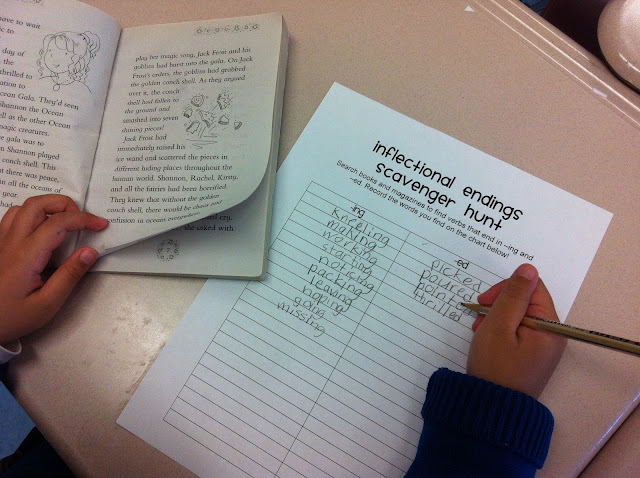 to wait
to
day of
the
thrilled to
to
Gala. They'd seen
Shannon the Ocean
as the other Ocean
magic creatures.
gala was to
Shannon played
conch shell. This
there was peace,
in all the oceans of
play her magic song, Jack Frost and his
goblins had burst into the gala. On Jack
Frost's orders, the goblins had grabbed
the golden conch shell. As they argued
over it, the conch
shell had fallen to
the ground and
smashed into seven
shining pieces!
Jack Frost had
immediately raised his
ice wand and scattered the pieces in
different hiding places throughout the
human world. Shannon, Rachel, Kirsty,
and all the fairies had been horrified.
They knew that without the golden
conch shell, there would be chaos and
confusion in oceans everywhere.
cry,
she asked with
inflectional endings
scavenger hunt
Search books and magazines to find verbs that end in -ing and
-ed. Record the words you find on the chart below!
-ing
Kneeling
working
starting
nothing
packing
leaving
hoping
going
missing
-ed
picked
poured
pointed
thrilled